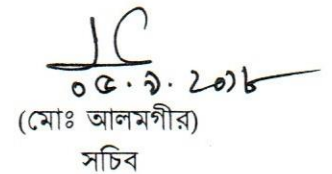 ০৫.৯.২০১৮
(মোঃ আলমগীর)
সচিব